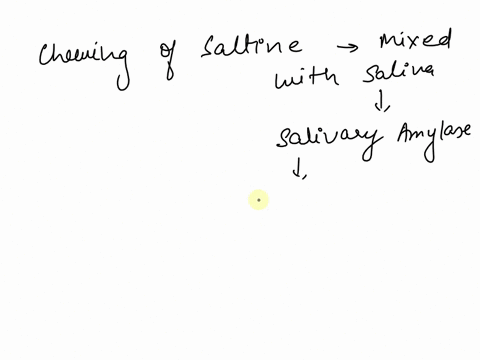 Chewing of Saltine → Mixed
with Saliva
↓
Salivary Amylase
↓